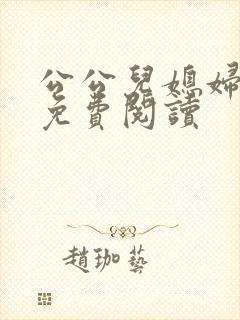 公公兒媳婦
免費閱讀
趙珈藝